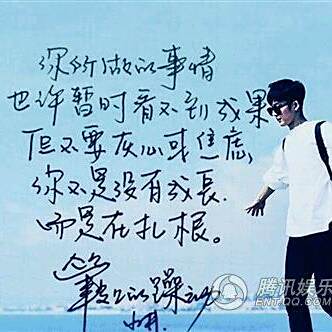 你所做的事情
也许暂时看不到成果
但不要灰心或焦虑,
你不是没有成長.
而是在扎根。
腾讯娱乐
ENT.QQ.COM